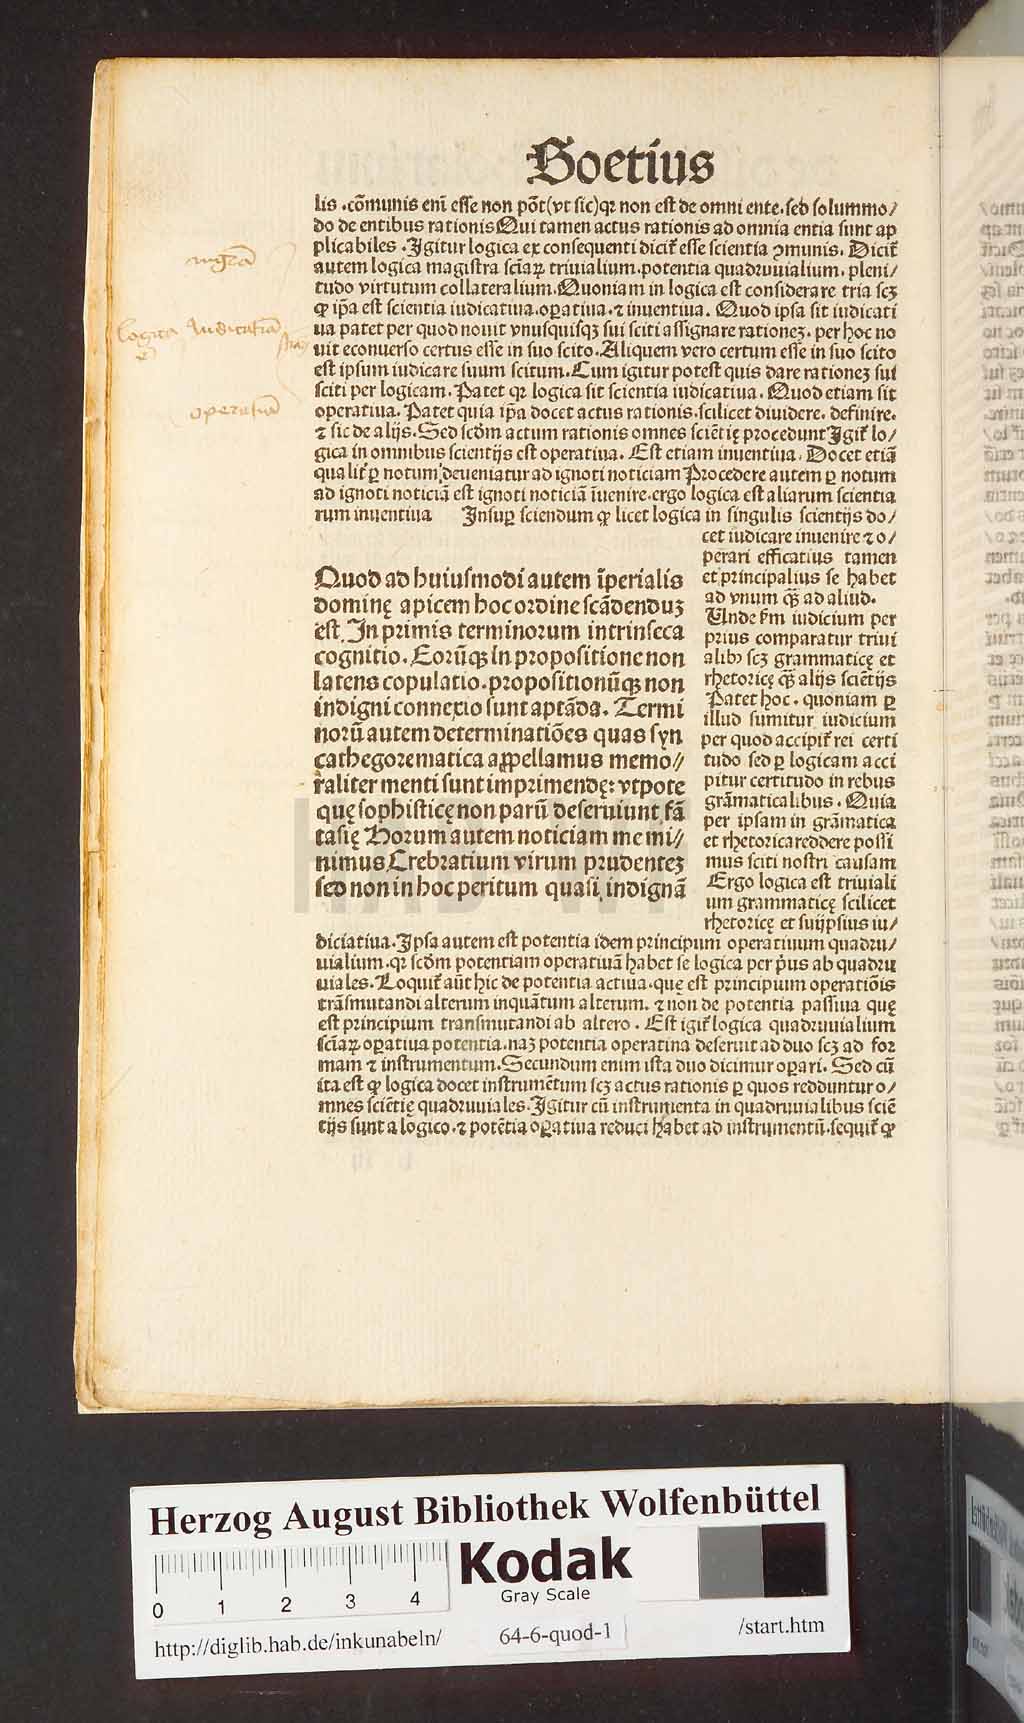 Boetius
lis .cõmunis eni esse non põt(vt sic)qꝛ non est de omni ente. sed solummo/
do de entibus rationis Qui tamen actus rationis ad omnia entia sunt ap
plicabiles .Igitur logica ex consequenti dicit᷑ esse scientia ꝯmunis. Dicit᷑
autem logica magistra sciaꝝ triuialium.potentia quadruuialium. pleni/
tudo virtutum collateralium.Quoniam in logica est considerare tria scꝫ
ꝙ ip̃a est scientia iudicatiua.oꝑatiua.⁊ inuentiua. Quod ipsa sit iudicati
ua patet per quod nouit vnusquisqꝫ sui sciti assignare rationeꝫ. per hoc no
uit econuerso certus esse in suo scito.Aliquem vero certum esse in suo scito
est ipsum iudicare suum scitum.Cum igitur potest quis dare rationeꝫ sui
sciti per logicam. Patet qꝛ logica sit scientia iudicatiua. Quod etiam sit
operatiua. Patet quia ip̃a docet actus rationis.scilicet diuidere. definire.
⁊ sic de alijs. Sed scd̃m actum rationis omnes sciẽtię procedunt Igit᷑ lo/
gica in omnibus scientijs est operatiua. Est etiam inuentiua. Docet etiã
qualit᷑ ꝑ notum deueniatur ad ignoti noticiam Procedere autem ꝑ notum
ad ignoti noticiã est ignoti noticiã ĩuenire.ergo logica est aliarum scientia
rum inuentiua Insuꝑ sciendum ꝙ licet logica in singulis scientijs do/
cet iudicare inuenire ⁊ o/
perari efficatius tamen
et principalius se habet
ad vnum qȝ̃ ad aliud.
Unde s̃m iudicium per
prius comparatur triui
alibꝰ scꝫ grammaticę et
rhetoricę qȝ̃ alijs sciẽtijs
Patet hoc. quoniam ꝑ
illud sumitur iudicium
per quod accipit᷑ rei certi
tudo sed ꝑ logicam acci
pitur certitudo in rebus
grãmaticalibus. Quia
per ipsam in grãmatica
et rhetorica reddere possi
mus sciti nostri causam
Ergo logica est triuiali
um grammaticę scilicet
rhetoricę et suiipsius iu/
Quod ad huiusmodi autem ĩperialis
dominę apicem hoc ordine scãdenduꝫ
est. In primis terminorum intrinseca
cognitio. Eorũqꝫ in propositione non
latens copulatio.propositionũqꝫ non
indigni connexio sunt aptãda. Termi
norũ autem determinatiões quas syn
cathegorematica appellamus memo//
raliter menti sunt imprimendę: vtpote
quę sophisticę non parũ deseruiunt fã
tasię Horum autem noticiam me mi//
nimus Crebratium virum prudenteꝫ
sed non in hoc peritum quasi indignã
diciatiua.Ipsa autem est potentia idem principum operatiuum quadru/
uialium.qꝛ scd̃m potentiam operatiuã habet se logica per pꝰus ab quadru
uiales. Loquit᷑ aũt hic de potentia actiua.quę est principium operatiõis
trãsmutandi alterum inquãtum alterum. ⁊ non de potentia passiua quę
est principium transmutandi ab altero. Est igit᷑ logica quadruuialium
sciaꝝ oꝑatiua potentia.naꝫ potentia operatiua deseruit ad duo scꝫ ad for
mam ⁊ instrumentum.Secundum enim ista duo dicimur oꝑari. Sed cũ
ita est ꝙ logica docet instrumẽtum scꝫ actus rationis ꝑ quos redduntur o/
mnes sciẽtię quadruuiales.Igitur cũ instrumenta in quadruuialibus sciẽ
tijs sunt a logico.⁊ potẽtia oꝑatiua reduci habet ad instrumentũ.sequit᷑ ꝙ
logica Iudicatiua
operatiua
HAB WF
Herzog August Bibliothek Wolfenbüttel
Kodak
Gray Scale
0 1 2 3 4
http://diglib.hab.de/inkunabeln/ 64-6-quod-1 /start.htm